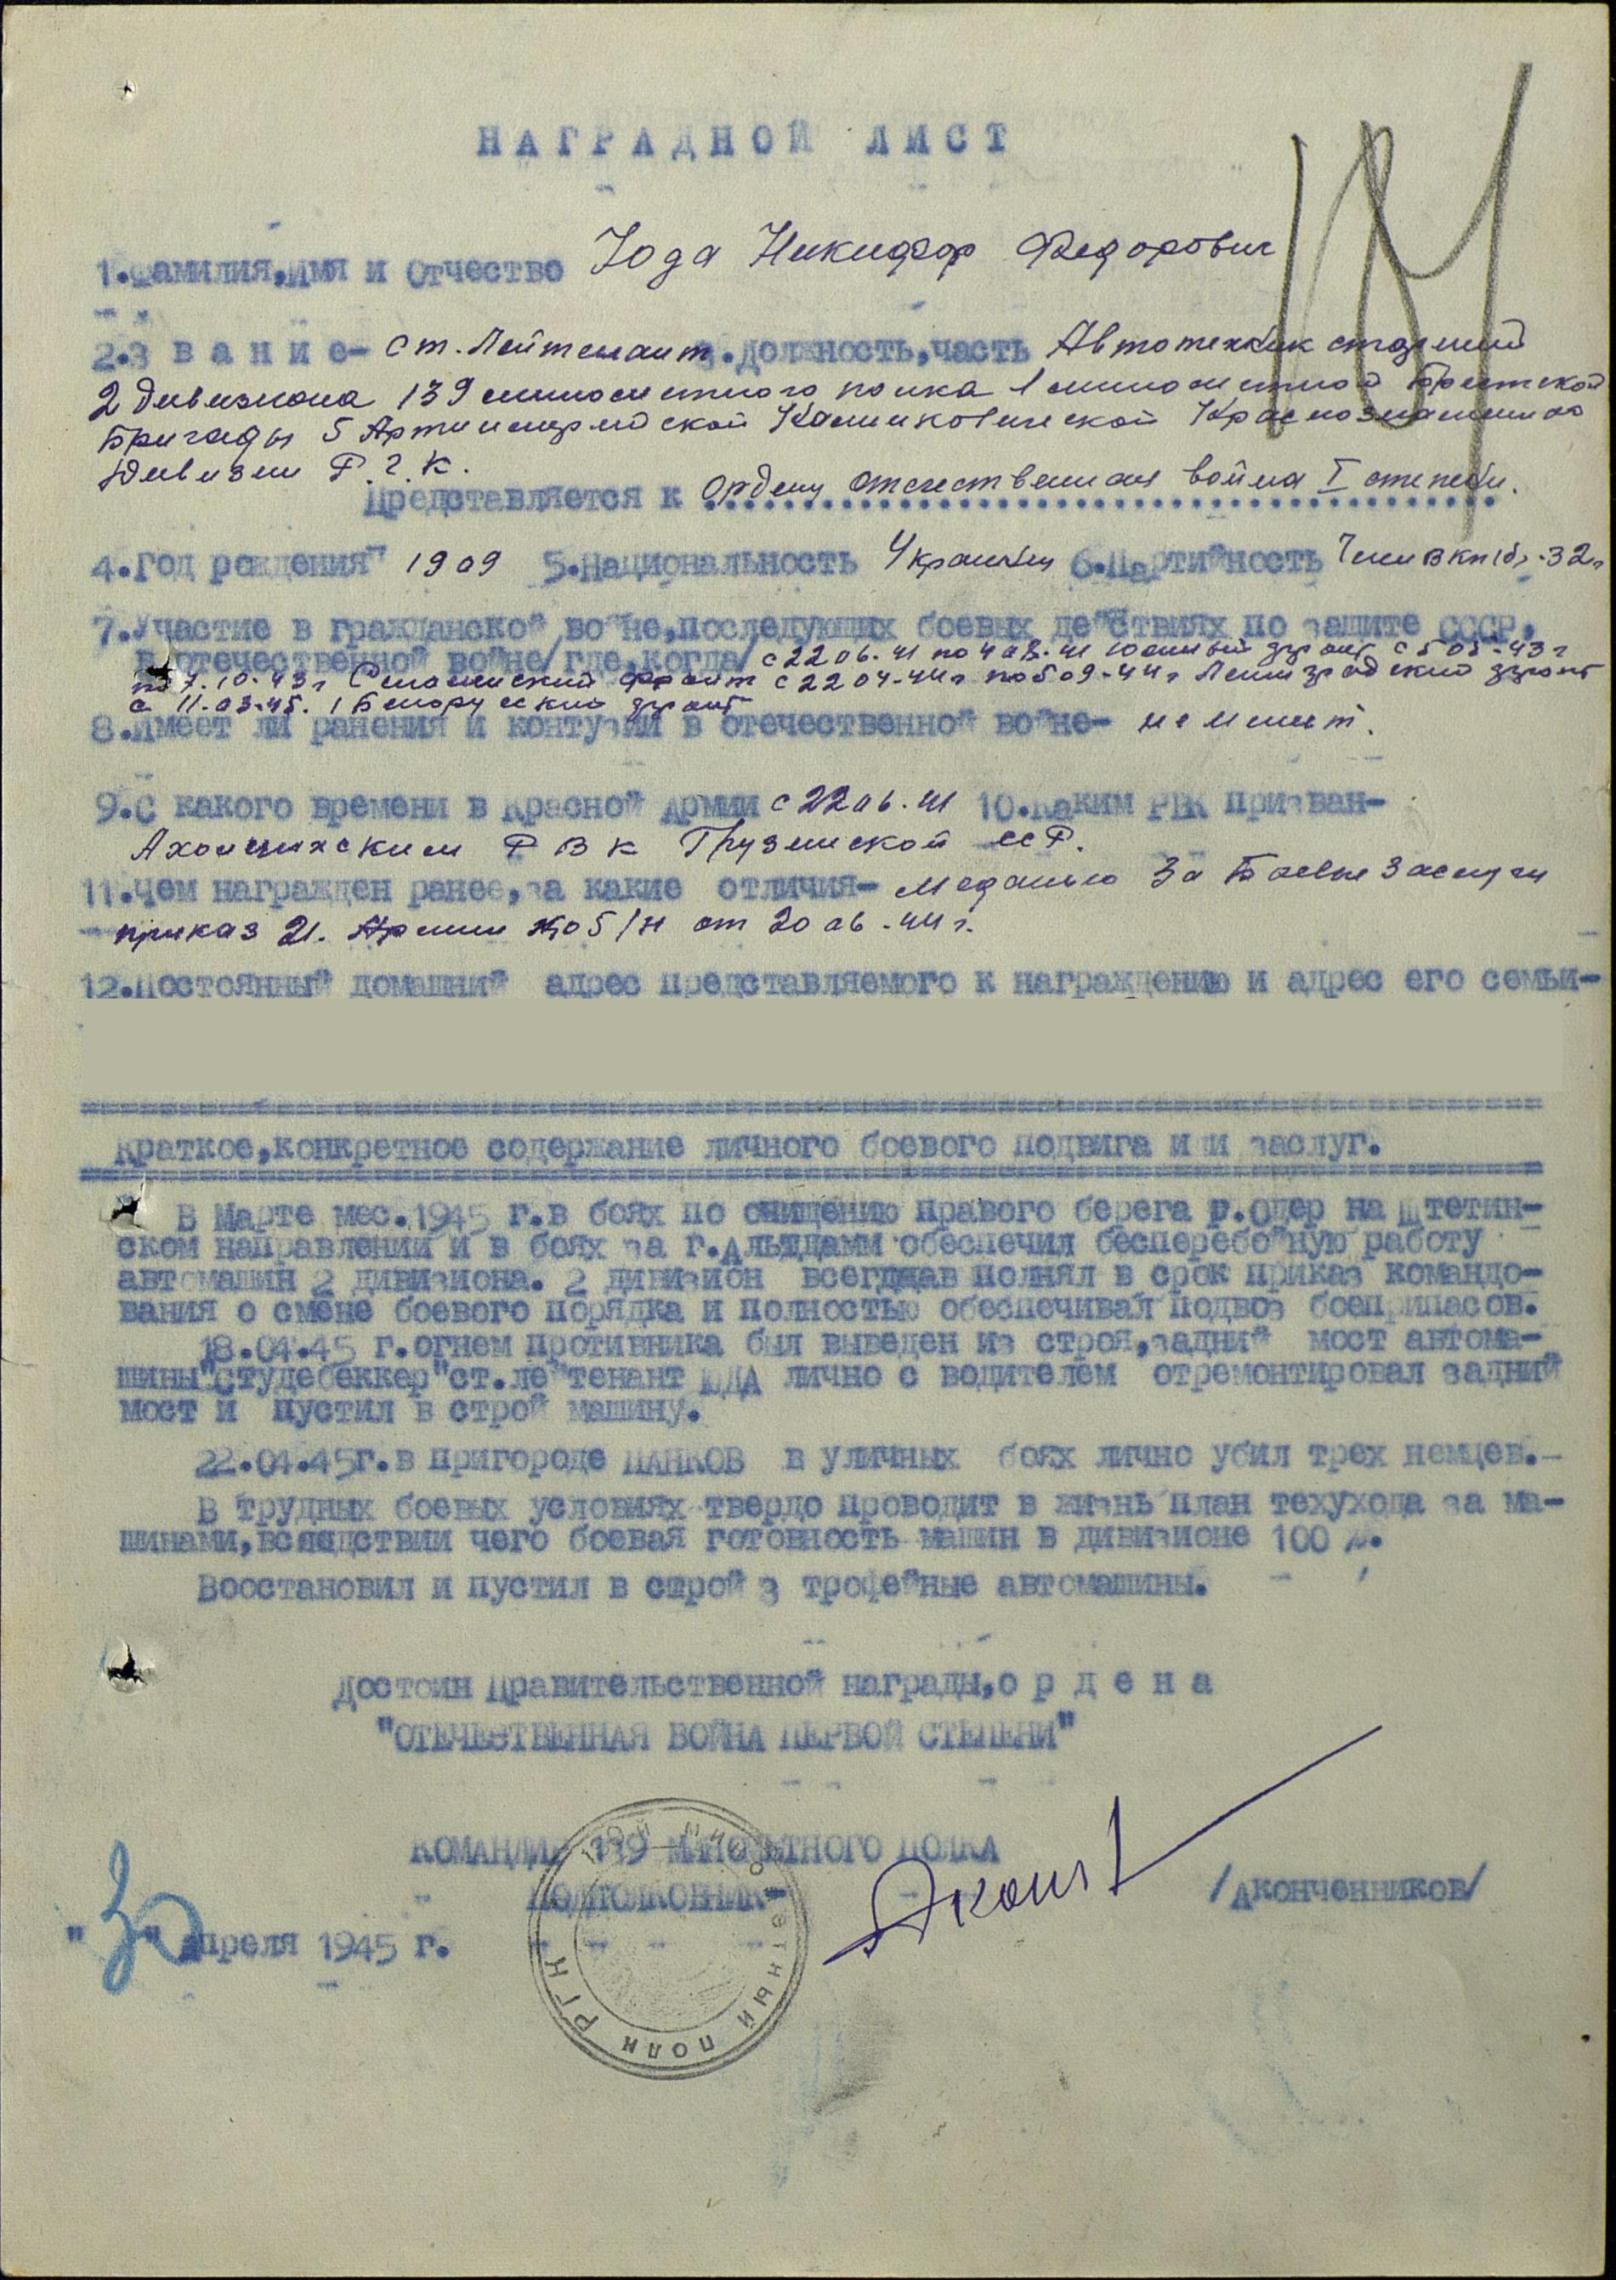 НАГРАДНОЙ ЛИСТ
184
1.Фамилия,Имя и Отчество Юда Никифор Федорович
2.З в а н и е- ст. Лейтенант 3.Должность,часть Автотехник старший
2 дивизиона 139 минометного полка 1 минометной Брестской
Бригады 5 Артиллерийской Калинковической Краснознаменно
Дивизии Р.Г.К.
Представляется к ордену отечественная война I степени.
4.Год рождения 1909 5.Национальность Украинец 6.Партийность Член ВКП(б)-32г
7.Участие в гражданской войне,последующих боевых действиях по защите СССР,
в отечественной войне/где,когда/ с 22 06.41 по 4 08.41 Южный фронт с 5 05-43г
по 7.10-43г фронт с 22 04-44г по 5 09-44г Ленинградский фронт
с 11.03.45. 1 Белорусский фронт
8.Имеет ли ранения и контузии в отечественной войне- не имеет.
9.С какого времени в Красной Армии с 22 06.41 10.Каким РВК призван-
Р В К Грузинской ССР.
11.Чем награжден ранее,за какие отличия- медалью За Боевые Заслуги
приказ 21. Армии №05/н от 20 06.44г.
12.Постоянный домашний адрес представляемого к награждению и адрес его семьи-
Краткое,конкретное содержание личного боевого подвига или заслуг.
В Марте мес.1945 г.в боях по очищению правого берега р.Одер на Штетин-
ском направлении и в боях за г.Альтдамм обеспечил бесперебойную работу
автомашин 2 дивизиона. 2 дивизион всегдав полнял в срок приказ командо-
вания о смене боевого порядка и полностью обеспечивал подвоз боеприпасов.
18.04.45 г.огнем противника был выведен из строя,задний мост автома-
шины"Студебеккер"ст.лейтенант ЮДА лично с водителем отремонтировал задний
мост и пустил в строй машину.
22.04.45г.в пригороде ПАНКОВ в уличных боях лично убил трех немцев.-
В трудных боевых условиях твердо проводит в жизнь план техухода за ма-
шинами,вследствии чего боевая готовность машин в дивизионе 100 %.
Воостановил и пустил в строй 3 трофейные автомашины.
Достоин Правительственной награды,о р д е н а
"ОТЕЧЕСТВЕННАЯ ВОЙНА ПЕРВОЙ СТЕПЕНИ"
КОМАНДИР 139 МИНОМЕТНОГО ПОЛКА
ПОДПОЛКОВНИК-
/Аконченников/
"30" апреля 1945 г.
МИНОМЕТНЫЙ ПОЛК РГК